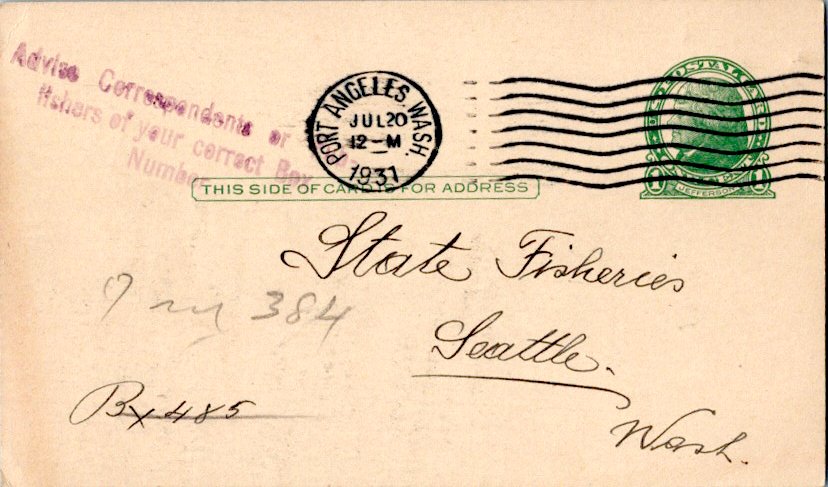 Advise Correspondents or
lishers of your correct Box
Number
PORT ANGELES WASH.
JUL 20
12 - M
1931
U.S. POSTAL CARD
JEFFERSON
1 1
THIS SIDE OF CARD IS FOR ADDRESS
State Fisheries
Seattle.
Wash.
384
Bx 485